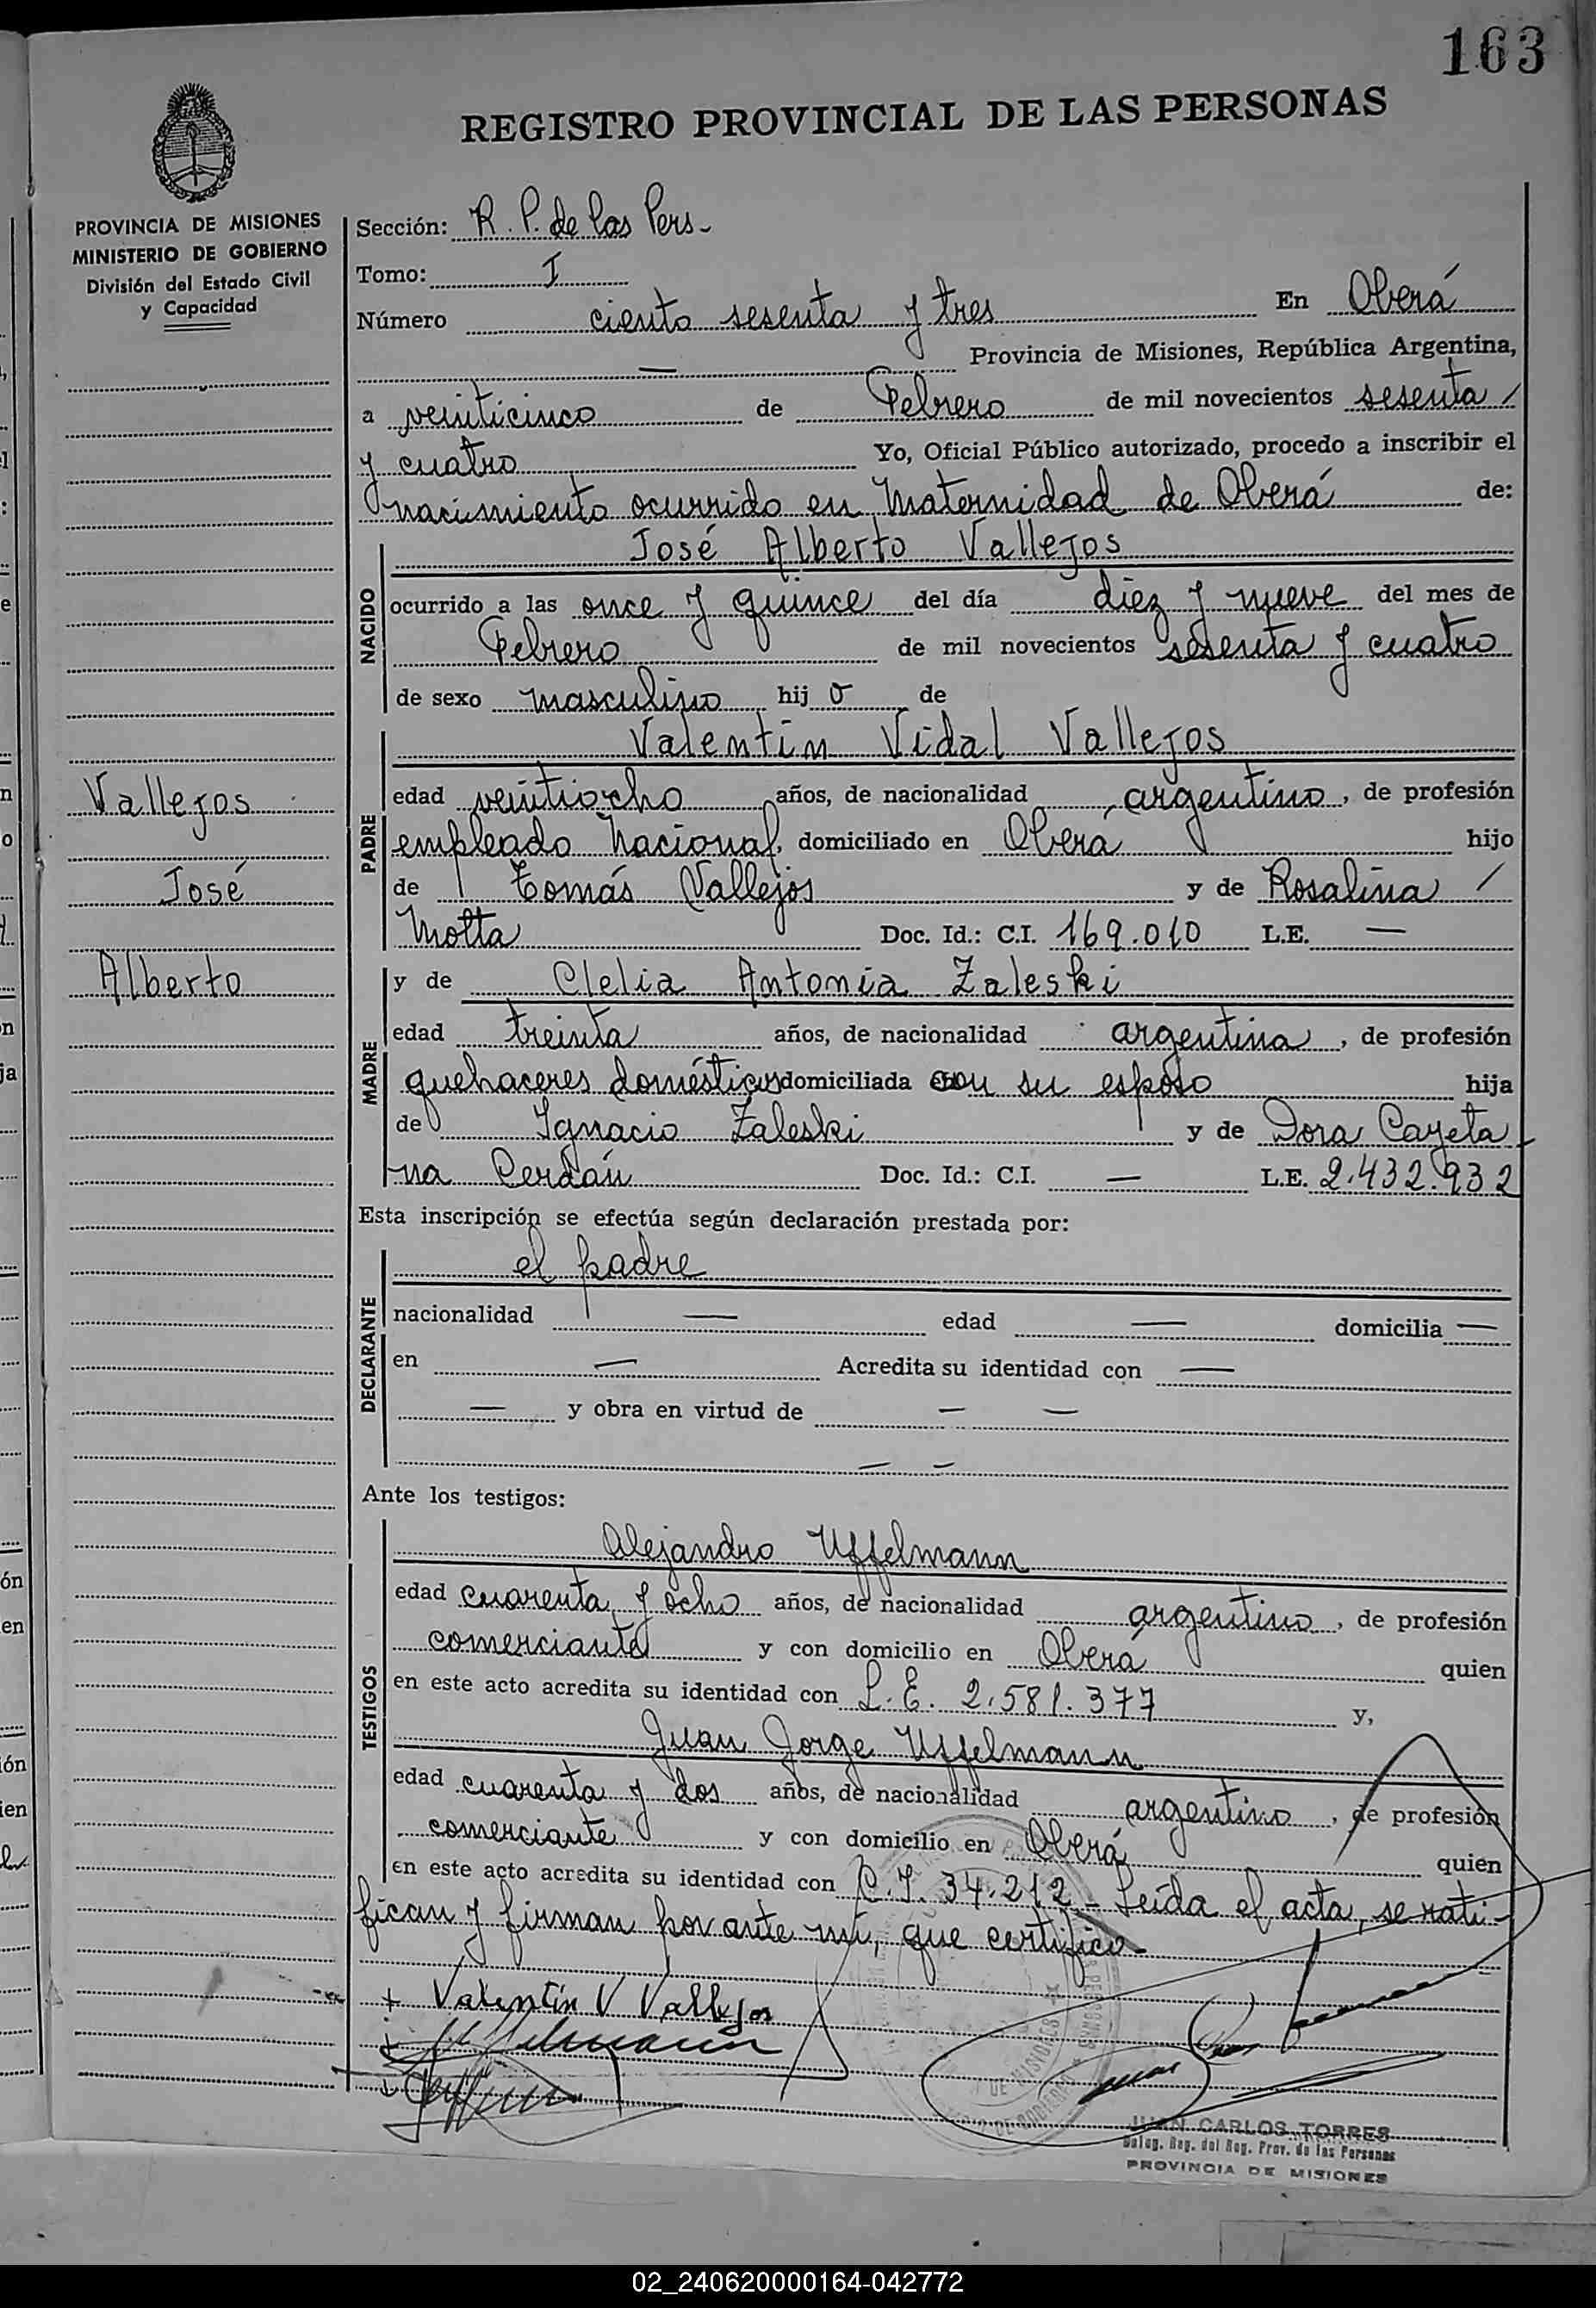 163
REGISTRO PROVINCIAL DE LAS PERSONAS
PROVINCIA DE MISIONES
MINISTERIO DE GOBIERNO
División del Estado Civil
y Capacidad
Vallejos
José
Alberto
Sección: R. P. de las Pers-
Tomo: I
Número ciento sesenta y tres En Oberá
— Provincia de Misiones, República Argentina,
a veinticinco de Febrero de mil novecientos sesenta /
y cuatro Yo, Oficial Público autorizado, procedo a inscribir el
nacimiento ocurrido en Maternidad de Oberá de:
NACIDO
José Alberto Vallejos
ocurrido a las once y quince del día diez y nueve del mes de
Febrero de mil novecientos sesenta y cuatro
de sexo masculino hij o de
PADRE
Valentin Vidal Vallejos
edad veintiocho años, de nacionalidad argentino, de profesión
empleado Nacional, domiciliado en Oberá hijo
de Tomás Vallejos y de Rosalina /
Motta Doc. Id.: C.I. 169.010 L.E. —
MADRE
y de Clelia Antonia Zaleski
edad treinta años, de nacionalidad argentina, de profesión
quehaceres domésticos domiciliada con su esposo hija
de Ignacio Zaleski y de Dora Cayeta
na Cerdán Doc. Id.: C.I. — L.E. 2.432.932
Esta inscripción se efectúa según declaración prestada por:
DECLARANTE
el padre
nacionalidad — edad — domicilia —
en — Acredita su identidad con —
— y obra en virtud de — —
— —
Ante los testigos:
TESTIGOS
Alejandro Uffelmann
edad cuarenta y ocho años, de nacionalidad argentino, de profesión
comerciante y con domicilio en Oberá quien
en este acto acredita su identidad con L.E. 2.581.377 y,
Juan Jorge Uffelmann
edad cuarenta y dos años, de nacionalidad argentino, de profesión
comerciante y con domicilio en Oberá quien
en este acto acredita su identidad con C.I. 34.212- Leída el acta, se rati-
fican y firman por ante mí, que certifico-
+ Valentín V Vallejos
JUAN CARLOS TORRES
Deleg. Reg. del Reg. Prov. de las Personas
PROVINCIA DE MISIONES
02_240620000164-042772